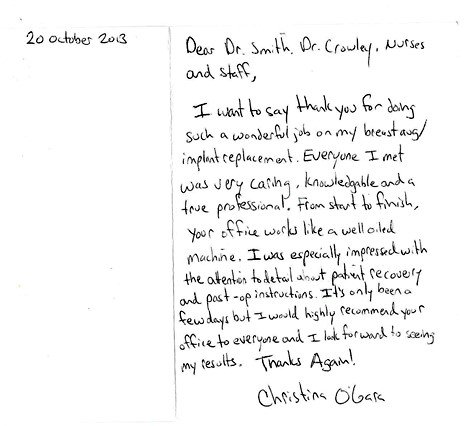 20 October 2013
Dear Dr. Smith, Dr. Crowley, Nurses
and staff,
I want to say thank you for doing
such a wonderful job on my breast aug/
implant replacement. Everyone I met
was very caring, knowledgable and a
true professional. From start to finish,
your office works like a well oiled
machine. I was especially impressed with
the attention to detail about patient recovery
and post-op instructions. It's only been a
few days but I would highly recommend your
office to everyone and I look forward to seeing
my results. Thanks Again!
Christina O'Gara